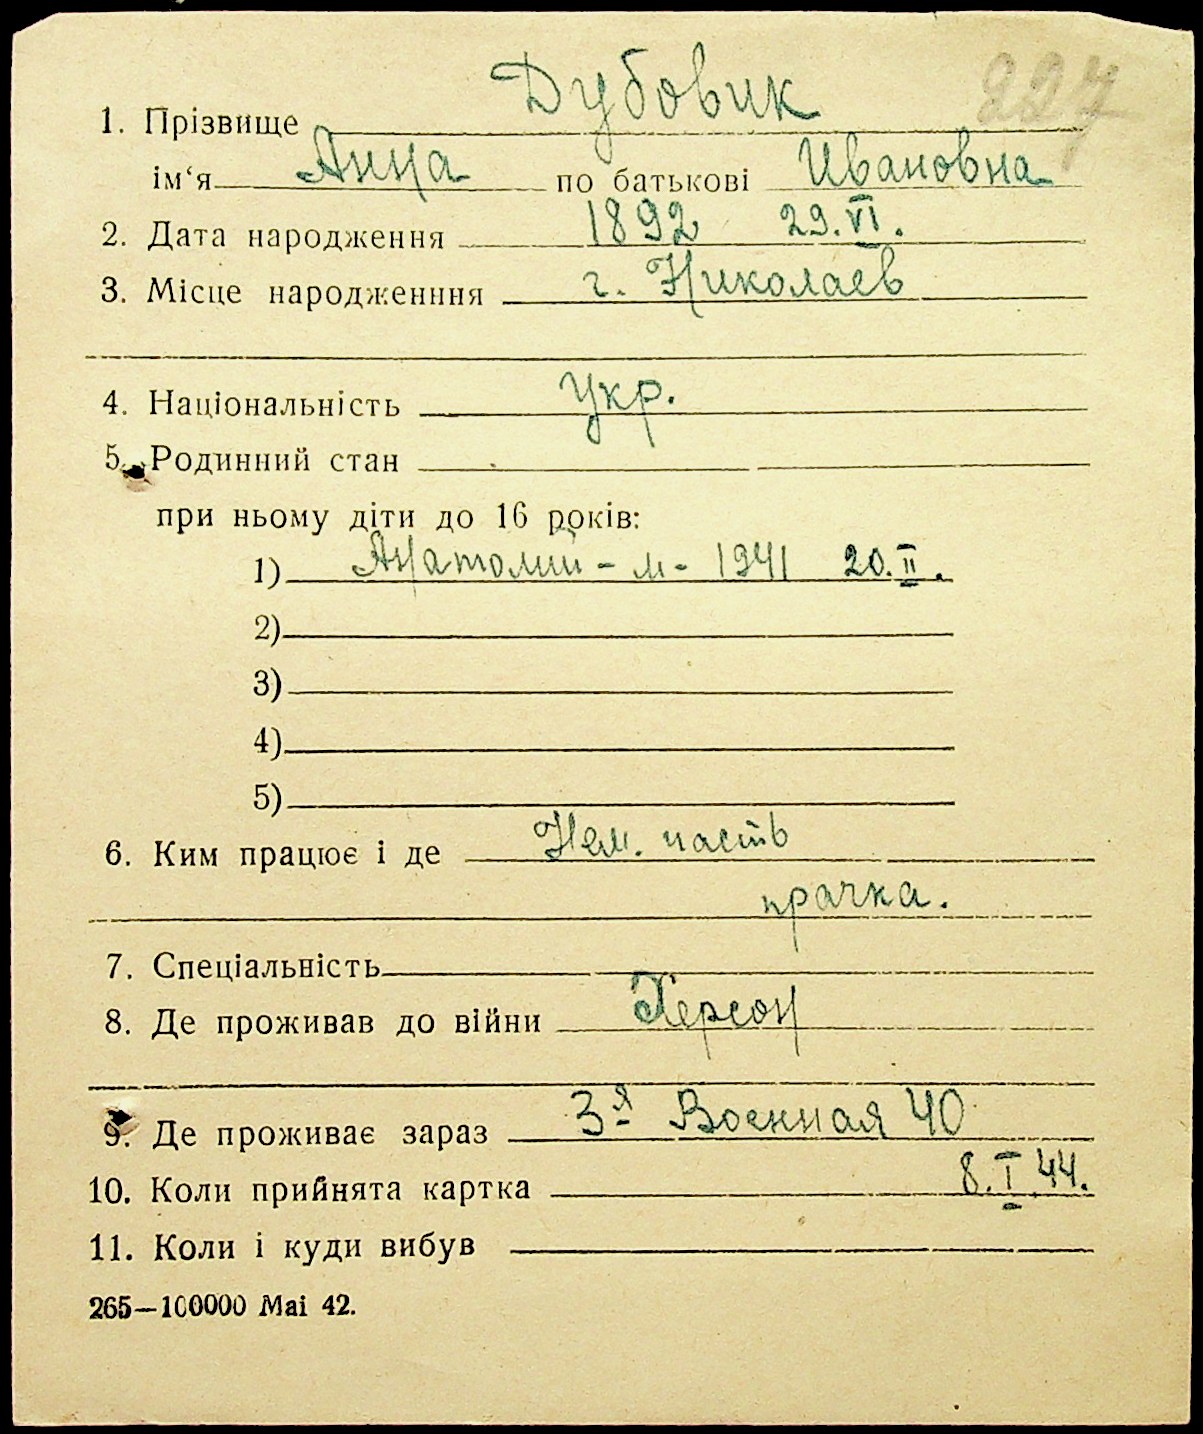 227
1. Прізвище Дубовик
ім‘я Анна по батькові Ивановна
2. Дата народження 1892 29.VI.
3. Місце народженння г. Николаев
4. Національність Укр.
5. Родинний стан
при ньому діти до 16 років:
1) Анатолий - м - 1941 20.II.
2)
3)
4)
5)
6. Ким працює і де Нем. часть
прачка.
7. Спеціальність
8. Де проживав до війни Херсон
9. Де проживає зараз 3я Военная 40
10. Коли прийнята картка 8.I.44.
11. Коли і куди вибув
265—100000 Mai 42.